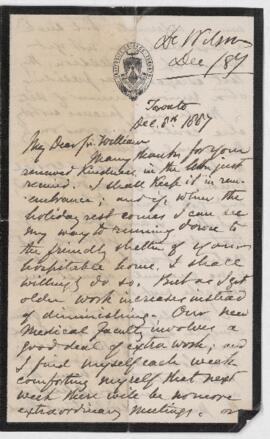 Dr Wilson
Dec /87
Toronto
Dec. 8th 1887
My Dear Sir William
Many thanks for your
renewed kindness in the letter just
received. I shall keep it in rem-
embrance; and if when the
holiday rest comes I can see
my way to running down to
the friendly shelter of your
hospitable home, I shall
willingly do so. But as I get
older work increases instead
of diminishing. Our new
Medical Faculty involves a
good deal of extra work; and
I find myself each week
comforting myself that next
week there will be no more
extraordinary meetings, or